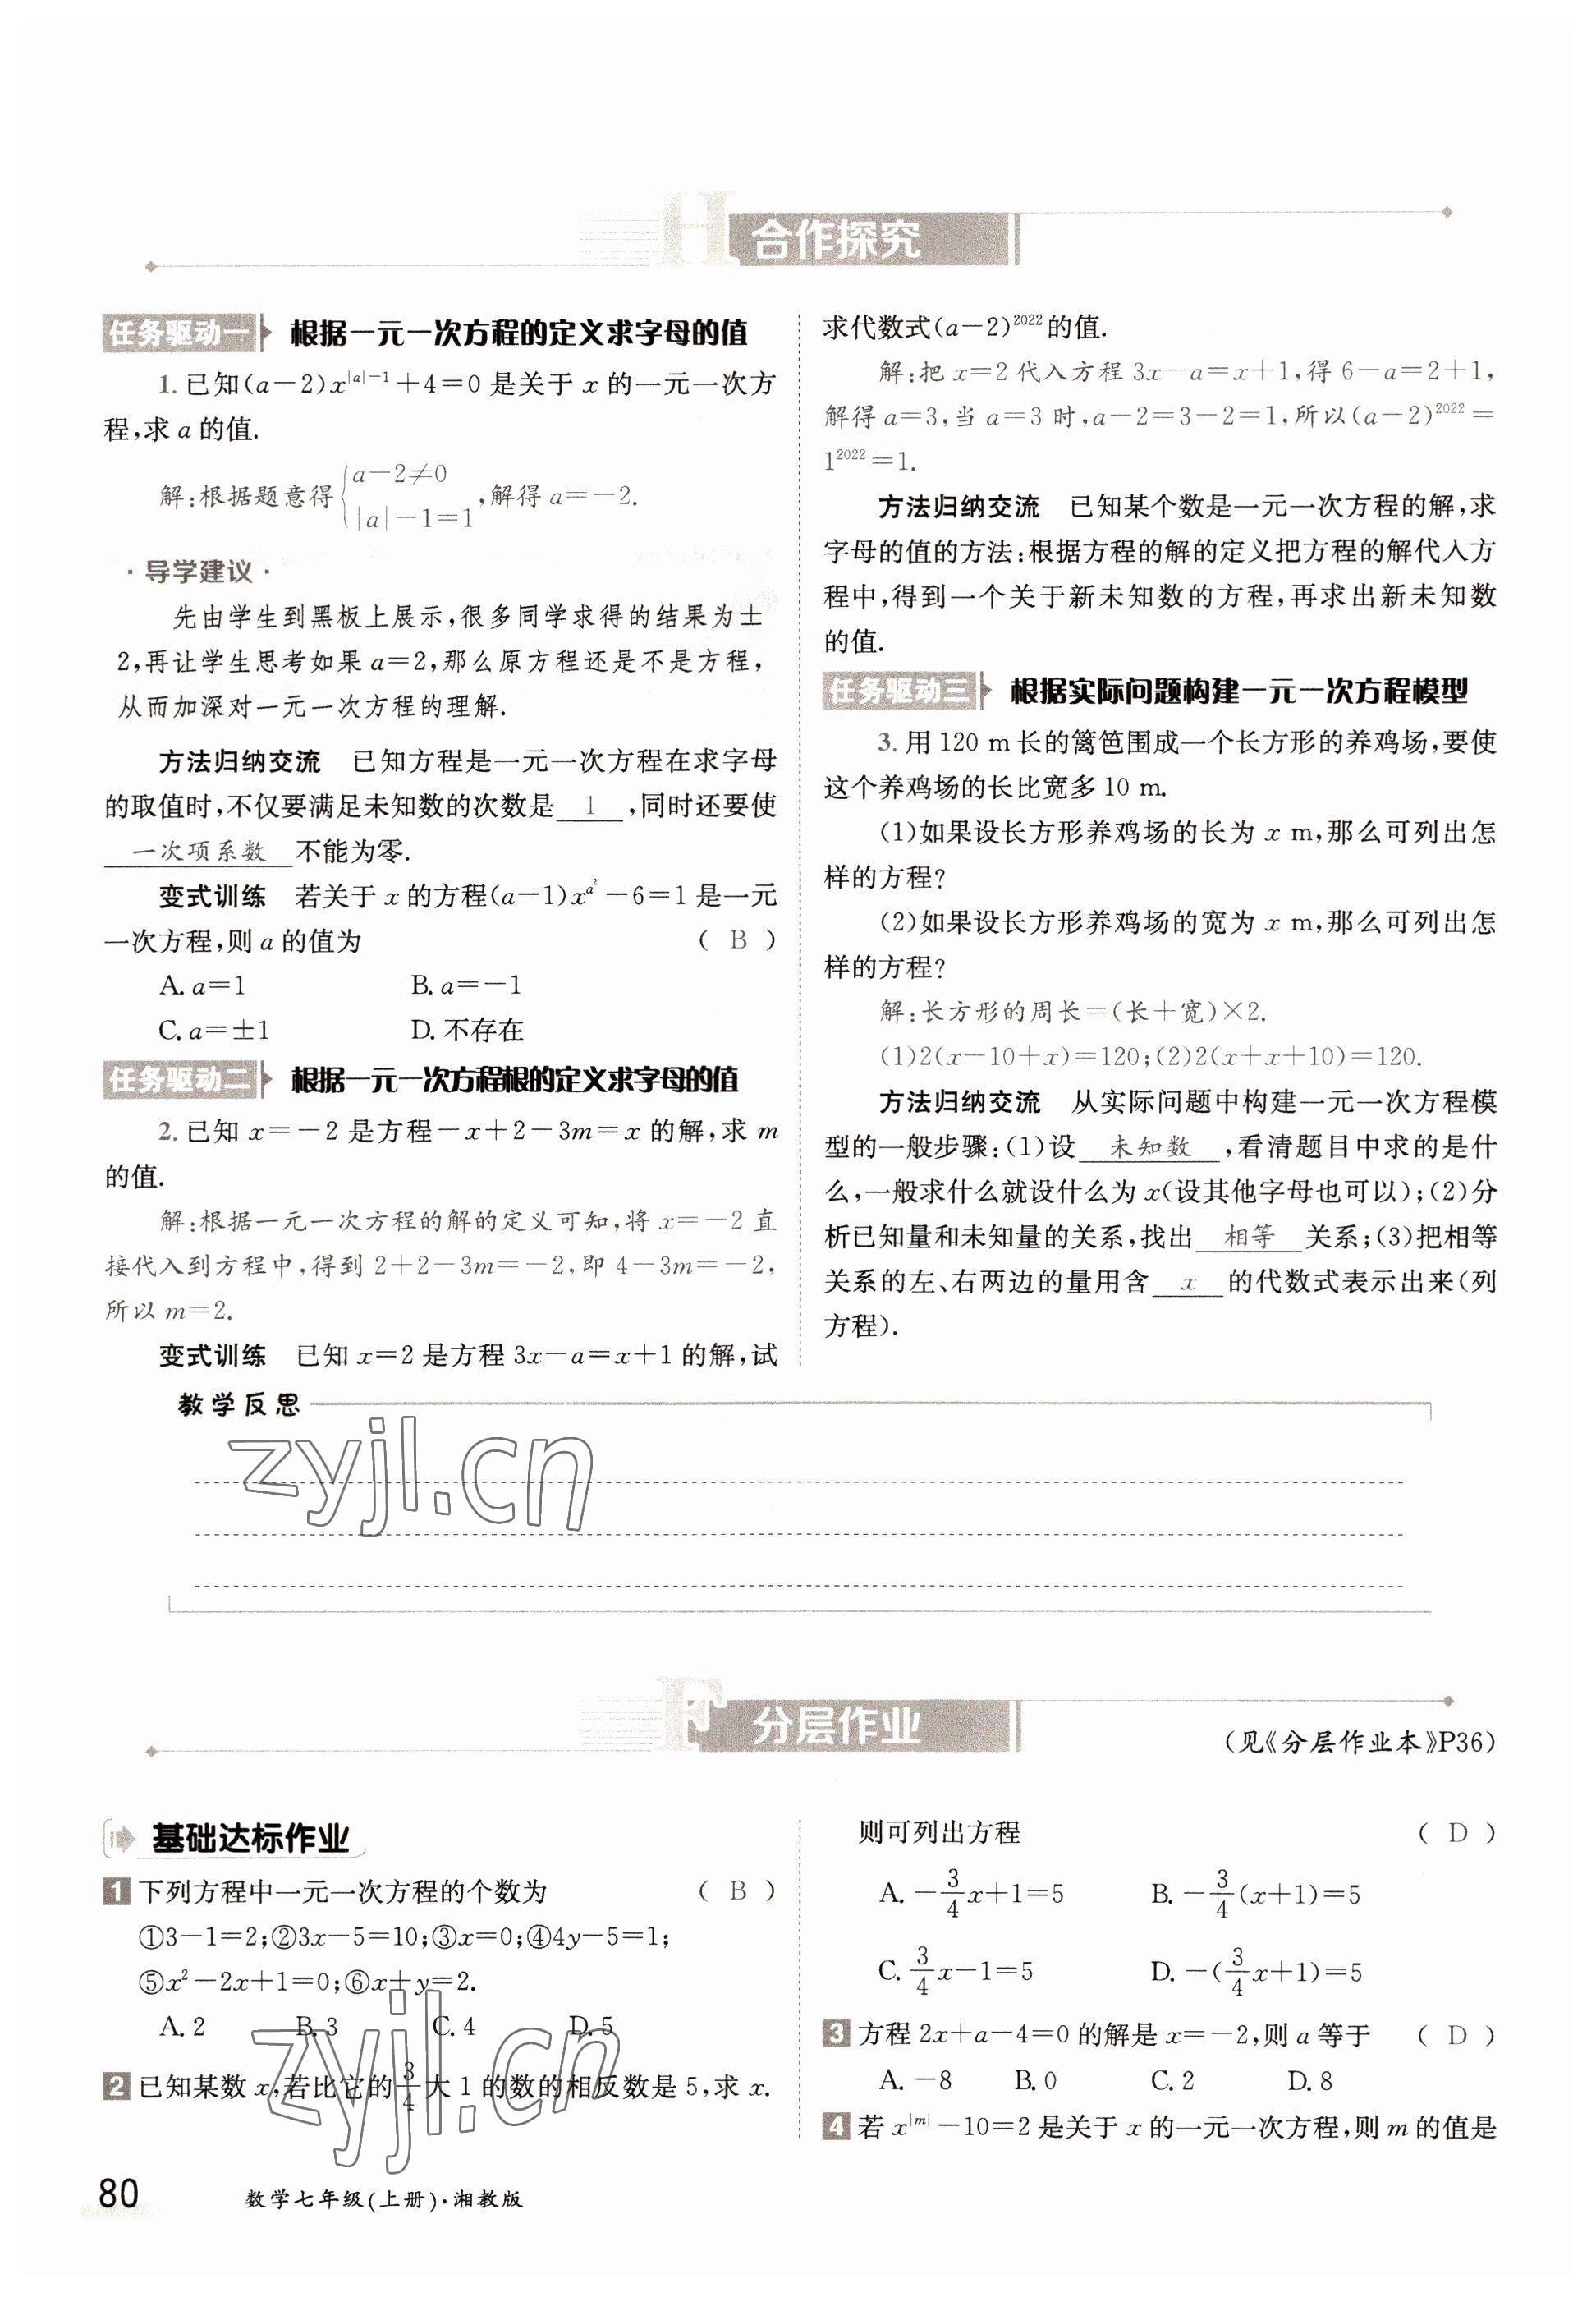 H 合作探究
任务驱动一 根据一元一次方程的定义求字母的值
1. 已知(a－2)x^{|a|－1}＋4＝0 是关于 x 的一元一次方
程,求 a 的值.
解:根据题意得{a－2≠0 |a|－1＝1,解得 a＝－2.
·导学建议·
先由学生到黑板上展示,很多同学求得的结果为±
2,再让学生思考如果 a＝2,那么原方程还是不是方程,
从而加深对一元一次方程的理解.
方法归纳交流 已知方程是一元一次方程在求字母
的取值时,不仅要满足未知数的次数是 1 ,同时还要使
一次项系数 不能为零.
变式训练 若关于 x 的方程(a－1)x^{a²}－6＝1 是一元
一次方程,则 a 的值为 ( B )
A. a＝1 B. a＝－1
C. a＝±1 D. 不存在
任务驱动二 根据一元一次方程根的定义求字母的值
2. 已知 x＝－2 是方程－x＋2－3m＝x 的解,求 m
的值.
解:根据一元一次方程的解的定义可知,将 x＝－2 直
接代入到方程中,得到 2＋2－3m＝－2,即 4－3m＝－2,
所以 m＝2.
变式训练 已知 x＝2 是方程 3x－a＝x＋1 的解,试
求代数式(a－2)²⁰²² 的值.
解:把 x＝2 代入方程 3x－a＝x＋1,得 6－a＝2＋1,
解得 a＝3,当 a＝3 时,a－2＝3－2＝1,所以(a－2)²⁰²²＝
1²⁰²²＝1.
方法归纳交流 已知某个数是一元一次方程的解,求
字母的值的方法:根据方程的解的定义把方程的解代入方
程中,得到一个关于新未知数的方程,再求出新未知数
的值.
任务驱动三 根据实际问题构建一元一次方程模型
3. 用 120 m 长的篱笆围成一个长方形的养鸡场,要使
这个养鸡场的长比宽多 10 m.
(1)如果设长方形养鸡场的长为 x m,那么可列出怎
样的方程?
(2)如果设长方形养鸡场的宽为 x m,那么可列出怎
样的方程?
解:长方形的周长＝(长＋宽)×2.
(1)2(x－10＋x)＝120;(2)2(x＋x＋10)＝120.
方法归纳交流 从实际问题中构建一元一次方程模
型的一般步骤:(1)设 未知数 ,看清题目中求的是什
么,一般求什么就设什么为 x(设其他字母也可以);(2)分
析已知量和未知量的关系,找出 相等 关系;(3)把相等
关系的左、右两边的量用含 x 的代数式表示出来(列
方程).
教学反思
zyjl.cn
F 分层作业
(见《分层作业本》P36)
基础达标作业
1 下列方程中一元一次方程的个数为 ( B )
①3－1＝2;②3x－5＝10;③x＝0;④4y－5＝1;
⑤x²－2x＋1＝0;⑥x＋y＝2.
A. 2 B. 3 C. 4 D. 5
2 已知某数 x,若比它的 3/4 大 1 的数的相反数是 5,求 x.
则可列出方程 ( D )
A. －3/4 x＋1＝5 B. －3/4 (x＋1)＝5
C. 3/4 x－1＝5 D. －(3/4 x＋1)＝5
3 方程 2x＋a－4＝0 的解是 x＝－2,则 a 等于 ( D )
A. －8 B. 0 C. 2 D. 8
4 若 x^{|m|}－10＝2 是关于 x 的一元一次方程,则 m 的值是
zyjl.cn
80 数学七年级(上册)·湘教版